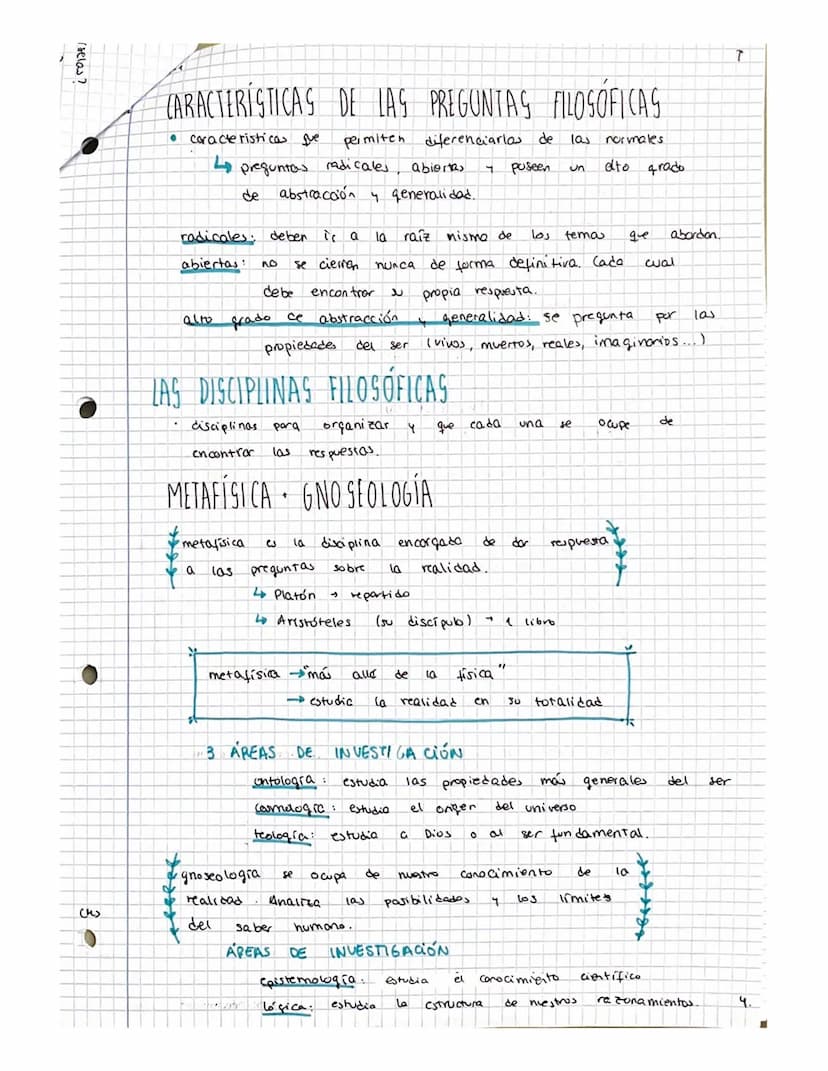 CARACTERÍSTICAS DE LAS PREGUNTAS FILOSÓFICAS
• características que permiten diferenciarlas de las normales
↳ preguntas radicales, abiertas y poseen un alto grado
de abstracción y generalidad.
radicales: deben ir a la raíz mismo de los temas que abordan.
abiertas: no se cierran nunca de forma definitiva. Cada cual
debe encontrar su propia respuesta.
alto grado de abstracción y generalidad: se pregunta por las
propiedades del ser (vivos, muertos, reales, imaginarios...)
LAS DISCIPLINAS FILOSÓFICAS
· disciplinas para organizar y que cada una se ocupe de
encontrar las respuestas.
METAFÍSICA · GNOSEOLOGÍA
metafísica es la disciplina encargada de dar respuesta
a las preguntas sobre la realidad.
↳ Platón → repartido
↳ Aristóteles (su discípulo) → 1 libro
metafísica → "más allá de la física"
→ estudia la realidad en su totalidad
3 ÁREAS DE INVESTIGACIÓN
ontología: estudia las propiedades más generales del ser
cosmología: estudia el origen del universo
teología: estudia a Dios o al ser fundamental.
gnoseología se ocupa de nuestro conocimiento de la
realidad. Analiza las posibilidades y los límites
del saber humano.
ÁREAS DE INVESTIGACIÓN
epistemología: estudia el conocimiento científico
lógica: estudia la estructura de nuestros razonamientos. 4.